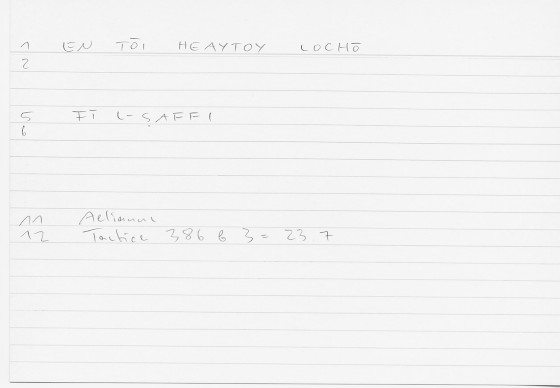 1 EN TŌI HEAYTOY LOCHŌ
2
5 FĪ L-ṢAFFI
6
11 Aelianus
12 Tactica 386 b 3 = 23 7